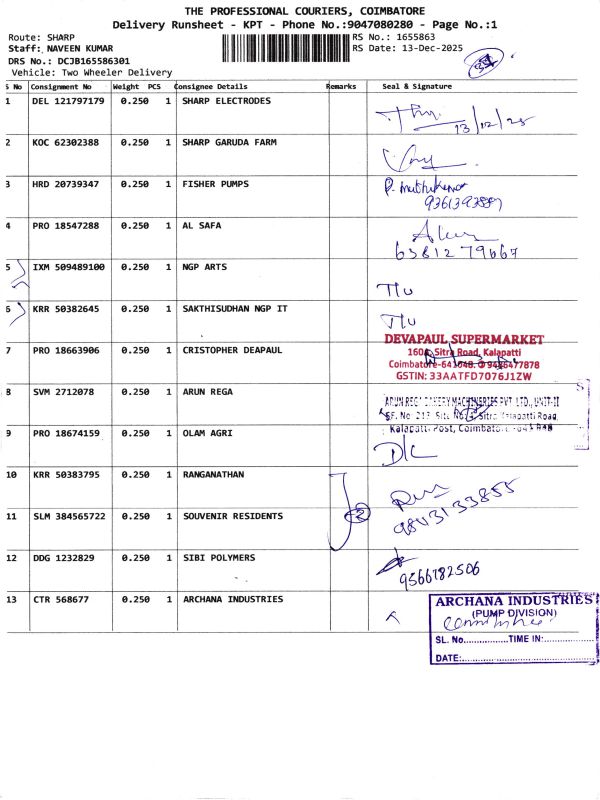 THE PROFESSIONAL COURIERS, COIMBATORE
Delivery Runsheet - KPT - Phone No.:9047080280 - Page No.:1
Route: SHARP
RS No.: 1655863
Staff: NAVEEN KUMAR
RS Date: 13-Dec-2025
DRS No.: DCJB165586301
Vehicle: Two Wheeler Delivery
S No Consignment No Weight PCS Consignee Details Remarks Seal & Signature
1 DEL 121797179 0.250 1 SHARP ELECTRODES
13/12/25
2 KOC 62302388 0.250 1 SHARP GARUDA FARM
3 HRD 20739347 0.250 1 FISHER PUMPS
4 PRO 18547288 0.250 1 AL SAFA
63812 79667
5 IXM 509489100 0.250 1 NGP ARTS
T/u
6 KRR 50382645 0.250 1 SAKTHISUDHAN NGP IT
T/u
DEVAPAUL SUPERMARKET
7 PRO 18663906 0.250 1 CRISTOPHER DEAPAUL
Sitra Road, Kalapatti
GSTIN: 33AATFD7076J1ZW
8 SVM 2712078 0.250 1 ARUN REGA
9 PRO 18674159 0.250 1 OLAM AGRI
Kalapatti Post,
D/L
10 KRR 50383795 0.250 1 RANGANATHAN
9843133855
11 SLM 384565722 0.250 1 SOUVENIR RESIDENTS
12 DDG 1232829 0.250 1 SIBI POLYMERS
9566782506
13 CTR 568677 0.250 1 ARCHANA INDUSTRIES
ARCHANA INDUSTRIES
(PUMP DIVISION)
SL. No................TIME IN:................
DATE:................